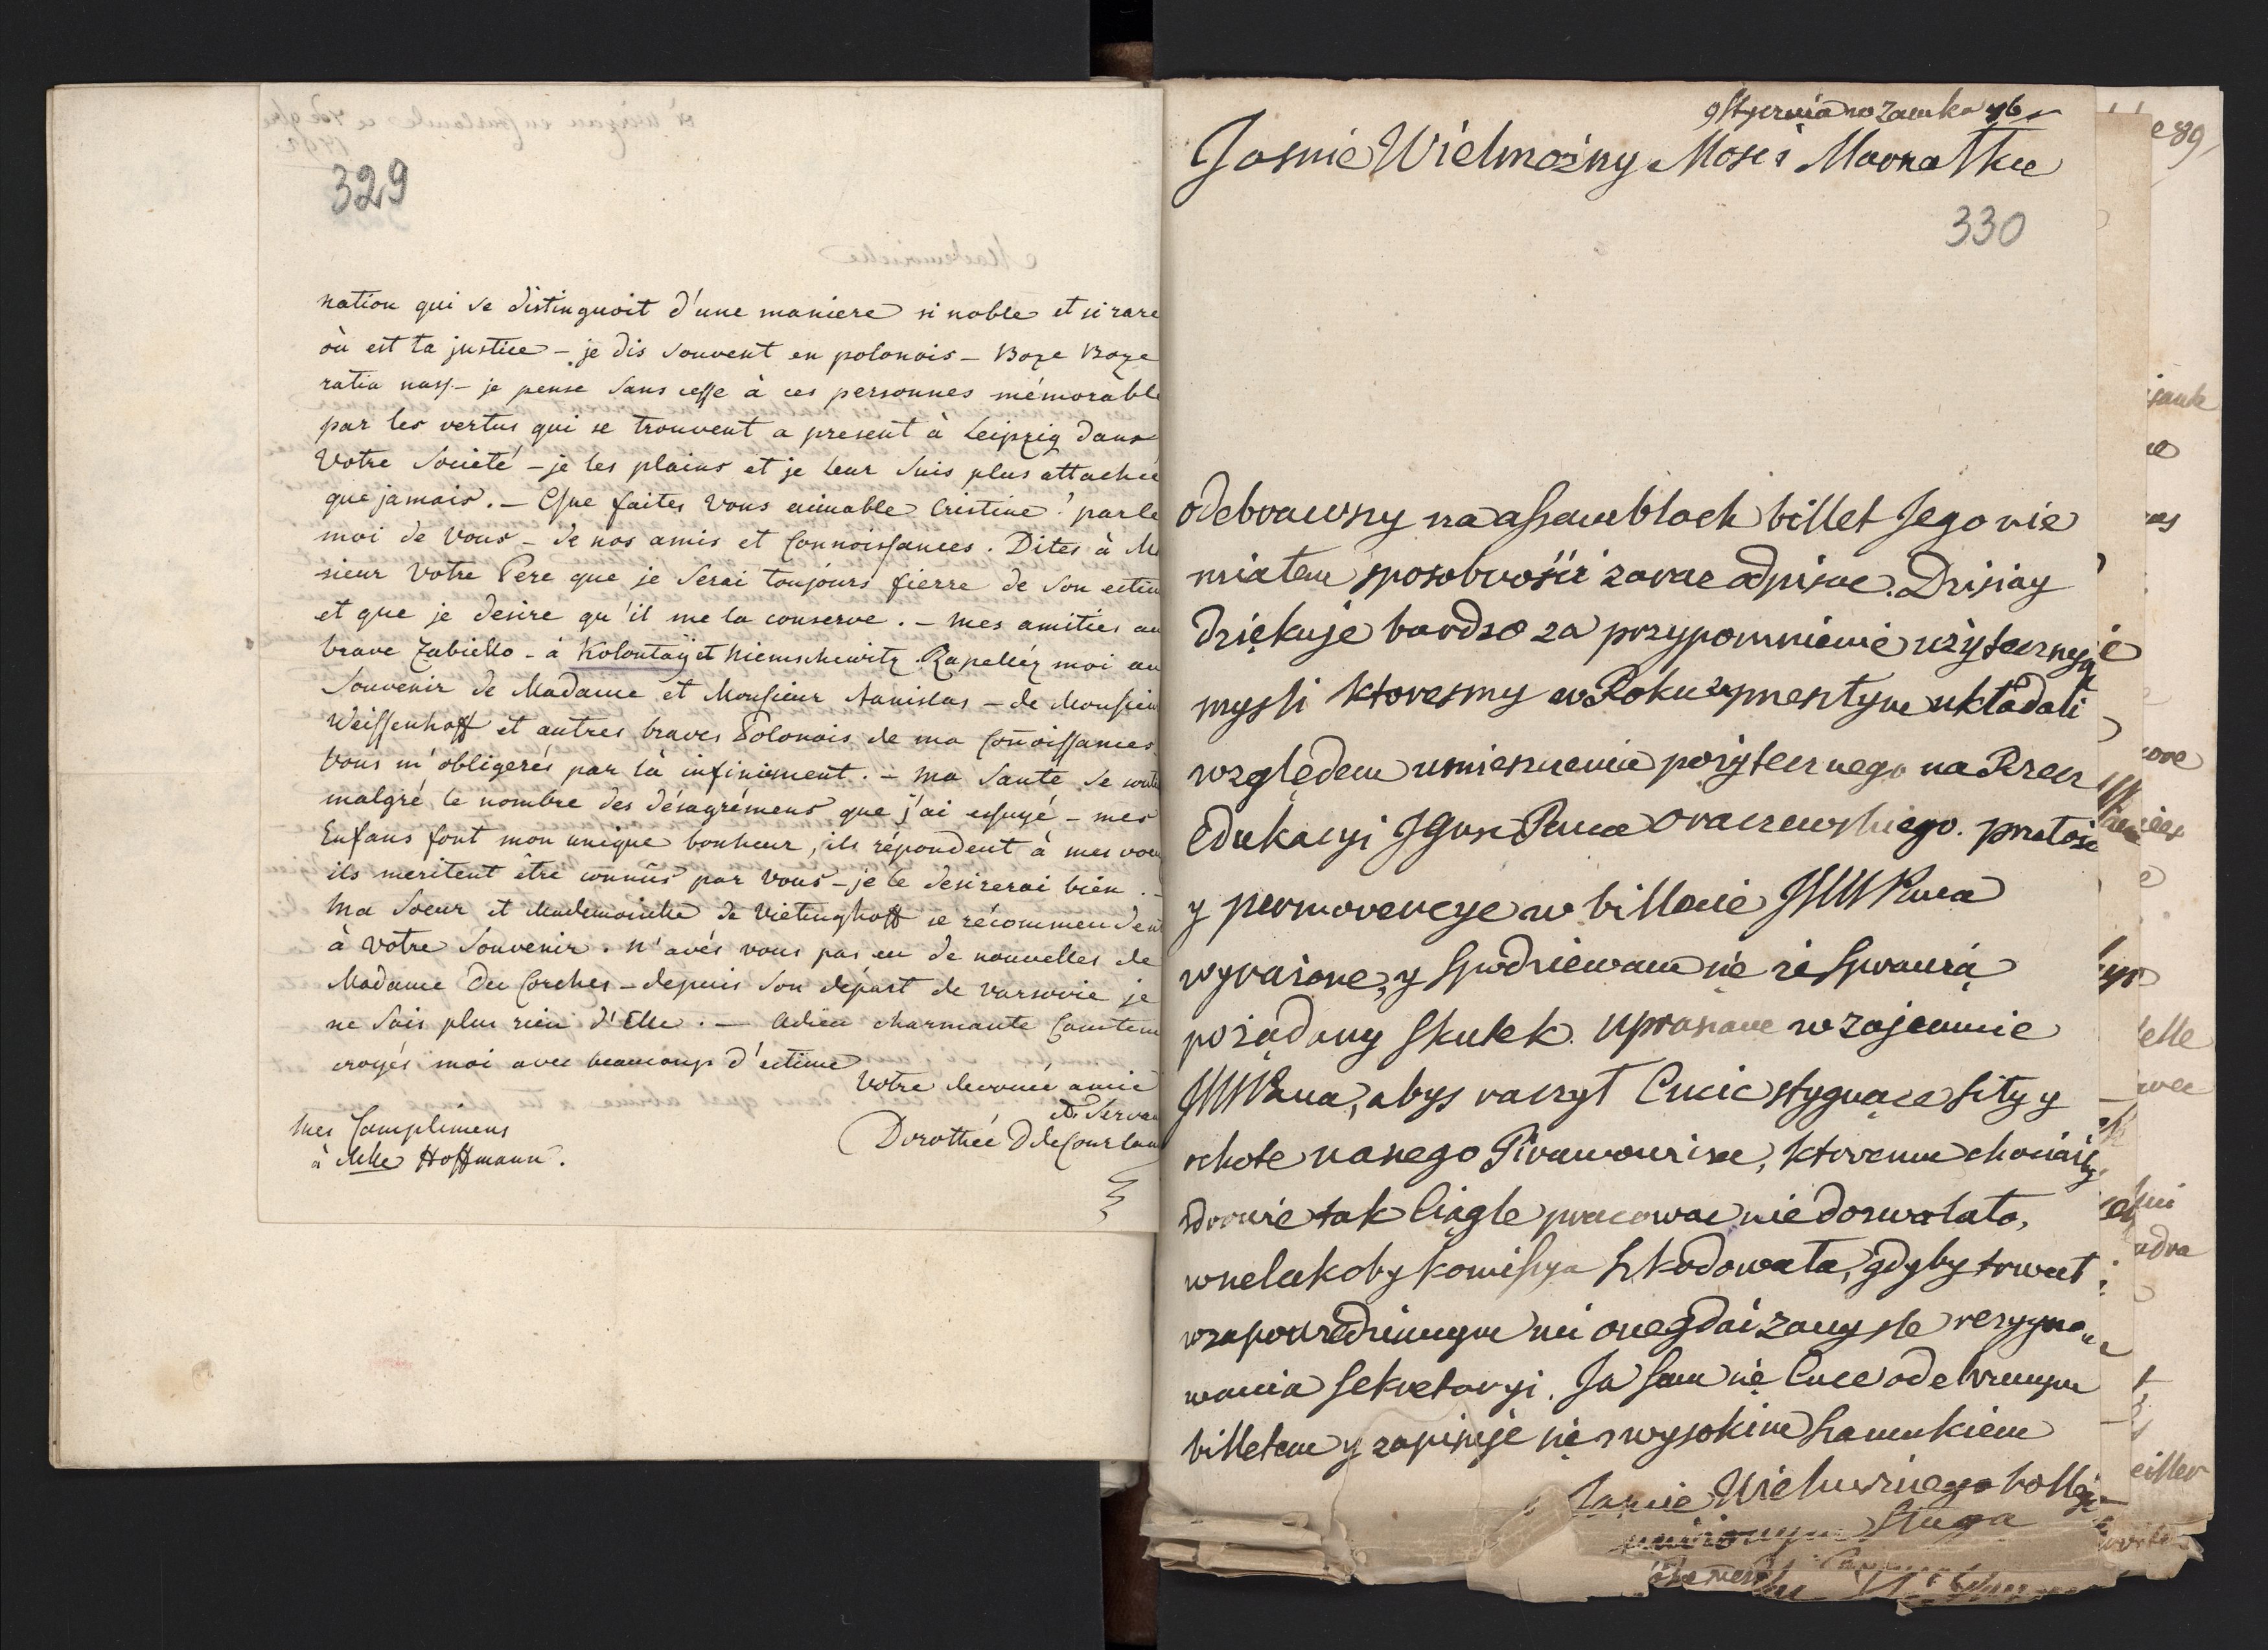 329
nation qui se distinguoit d'une maniere si noble et si rare
où est ta justice – je dis souvent en polonois – Boze Boze
ratia nas – je pense sans cesse à ces personnes mémorabl
par les vertus qui se trouvent a present à Leipzig dans
Votre Societé – je les plains et je leur suis plus attachée
que jamais. – Que faites Vous aimable Cristine? parle
moi de Vous – de nos amis et Connoissances. Dites à M
sieur Votre Pere que je serai toujours fierre de son estim
et que je desire qu'il me la conserve. – mes amitiés au
brave Zabiello – à Kolontaÿ et Niemschewitz Rapellés moi au
Souvenir de Madame et Monsieur Stanislas – de Monsieu
Weissenhoff et autres braves Polonois de ma Conoissances
Vous m'obligerés par là infiniement. – ma Santé se
malgré le nombre des désagrémens que j'ai essuyé – mes
Enfans font mon unique bonheur, ils répondent à mes voeu
ils meritent être connûs par Vous – je le desirerai bien. –
Ma Soeur et Mademoiselle de Vietinghoff se récommendent
à Votre Souvenir. N'avés vous pas eu de nouvelles de
Madame Du Corches – depuis son départ de Varsovie je
ne sais plus rien d'Elle. – Adieu charmante Comtesse
croyés moi avec beaucoup d'estime
Votre devouée amie
et Servan
Dorothée D de Courlan
Mes Complimens
à Mlle Hoffmann.
9 Stycznia w Zamku
Jasnie Wielmożny Mosci Marszałku
330
odebrawszy na assamblach billet Jego nie
miałem sposobności zaraz odpisac. Dzisiay
dziękuje bardzo za przypomnienie użyteczney
mysli ktoresmy w Roku zeszłym układali
względem umieszczenia pożytecznego na Rzecz
Edukacyi JGosc Pana Oraczewskiego.
y w billecie JWWPana
wyrażone, y Spodziewam się że Sprawią
pożądany Skutek. Upraszam wzajemnie
JWWPana, abys raczył Cucic stygnące siły y
ochote naszego Piramowicza, ktoremu chociaż
zdrowie tak Ciągle pracowac niedozwalało,
wszelakoby Komissya Szkodowała, gdyby trwał
w zapowiedzianym mi onegdai zamysle rezygno
wania Sekretaryi. Ja Sam się Cuce odebranym
billetem y zapisuje się z wysokim Szacunkiem
Jasnie Wielmożnego
uniżonym Sługa